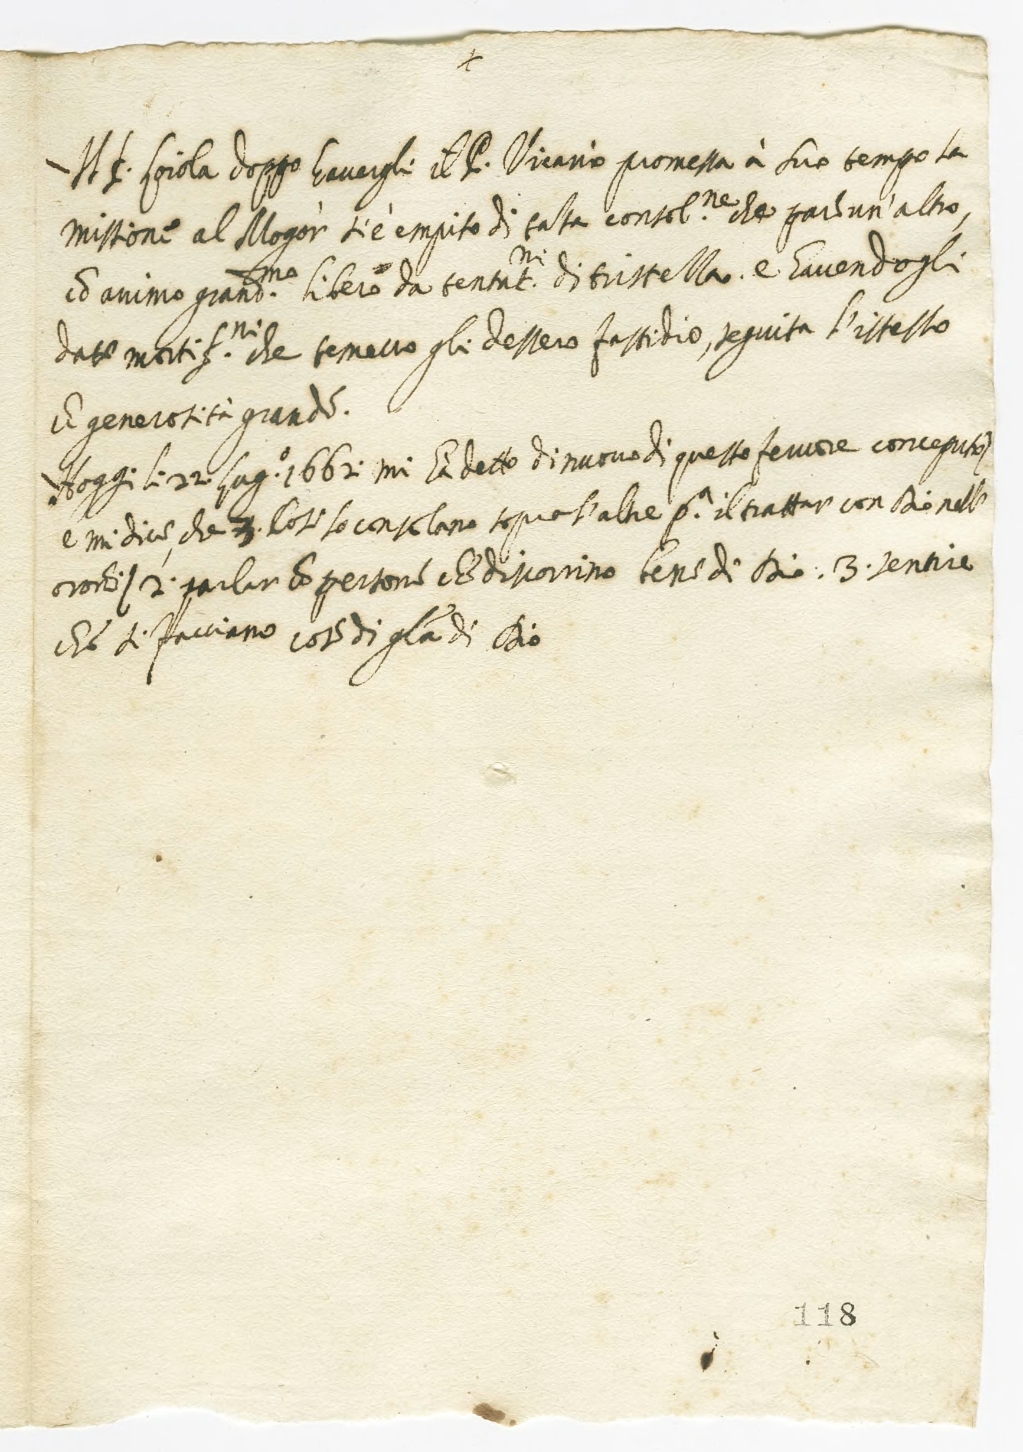 +
Il P. Spiola doppo havergli il P. Vicario promessa à suo tempo la
missione al Mogòr s'è empito di tãta consol.ne che pare un'altro,
cõ animo grand.mo libero da tentat.ni di tristezza. e havendogli
date mortif.ni che temevo gli dessero fastidio, seguita l'istesso
cõ generosità grande.
Hoggi li 22. Lug.o 1662. mi hà detto di nuovo di questo fervore conceputo,
e mi dice, che 3. cose lo consolano sopra l'altre p.a il trattar con Dio nell'
oroñi, 2. parlar cõ persone che discorrino bene di Dio. 3. sentire
che si facciano cose di glã di Dio
118